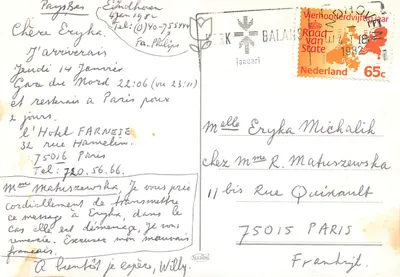 Pays Bas
Eindhoven
4 Jan 1982
Tel: (0)40-755444
Fa. Philips
Chère Eryka.
J'arriverais
Jeudi 14 Janvier
Gare du Nord 22:06 (ou 23:11)
et resterais à Paris pour
2 jours.
l'Hotel FARNESE
32 rue Hamelin.
75016 Paris
Tel: 720.56.66.
Mme Matuszewska, Je vous prie
cordiellement de transmettre
ce message à Eryka, dans le
cas elle est démenage, je vous
remercie. Excusez mon mauvais
français.
A bientôt je espère, Willy.
BALANS
januari
EINDHOVEN
1982
Vierhonderdvijftig jaar
Raad
van
State
Nederland 65c
Melle Eryka Michalik
chez Mme R. Matuszewska
11 bis Rue Quinault
75015 PARIS
Frankrijk